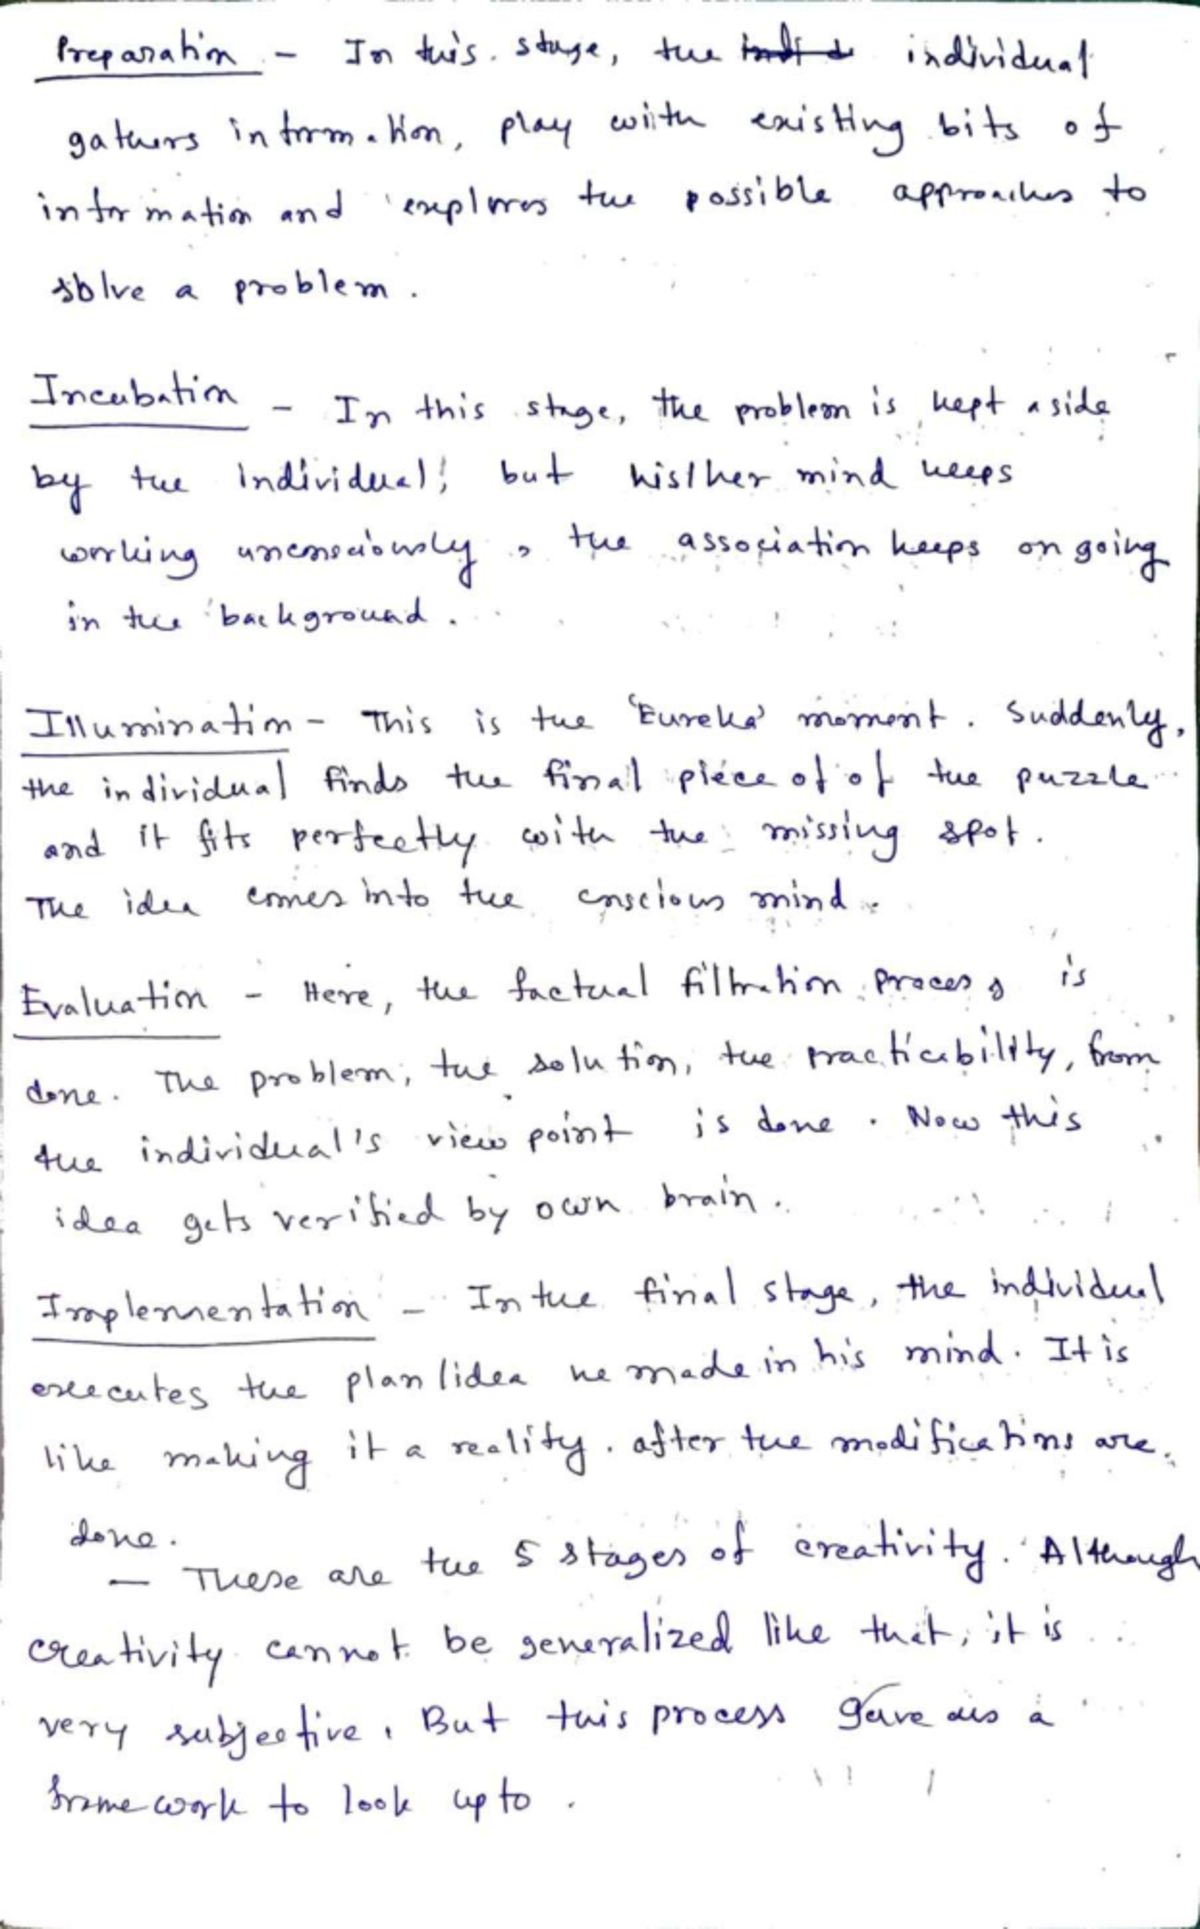 Preparation - In this stage, the individual
gathers information, play with existing bits of
information and explores the possible approaches to
solve a problem.
Incubation - In this stage, the problem is kept aside
by the individual; but his/her mind keeps
working unconsciously, the association keeps on going
in the background.
Illumination - This is the 'Eureka' moment. Suddenly,
the individual finds the final piece of of the puzzle
and it fits perfectly with the missing spot.
The idea comes into the conscious mind.
Evaluation - Here, the factual filtration process is
done. The problem, the solution, the practicability, from
the individual's view point is done. Now this
idea gets verified by own brain.
Implementation - In the final stage, the individual
executes the plan/idea he made in his mind. It is
like making it a reality. after the modifications are
done.
- These are the 5 stages of creativity. Although
creativity cannot be generalized like that, it is
very subjective. But this process gave us a
framework to look up to.